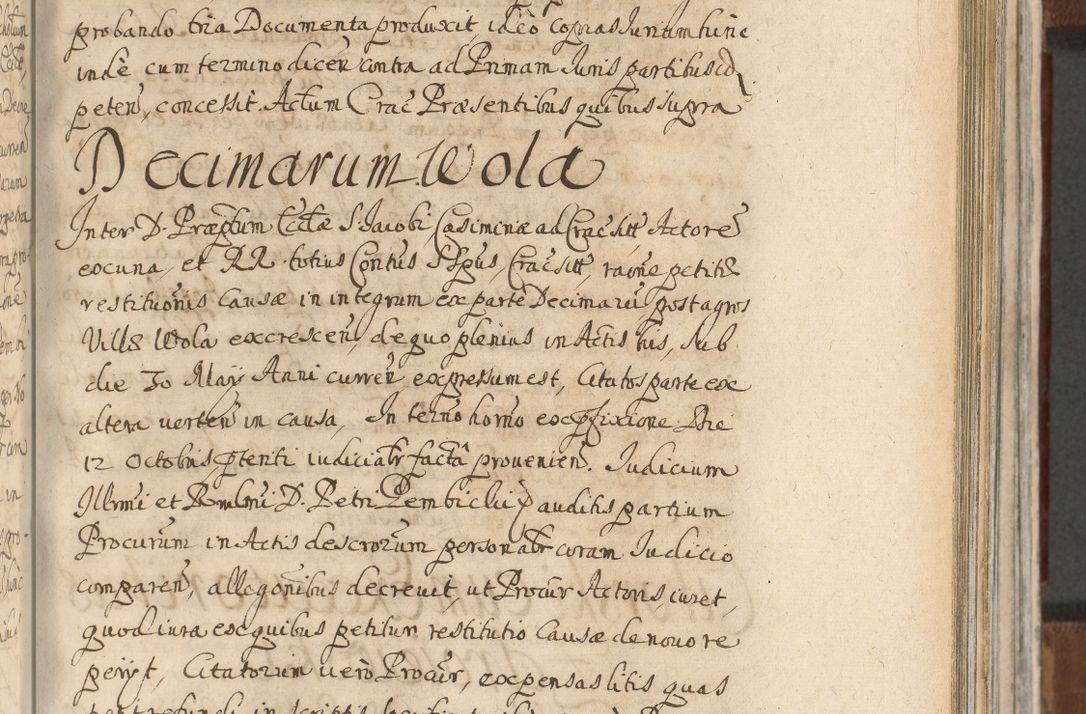 probando tria Documenta produxit, ideo copias Juntim hinc
inde cum termino dicen contra ad Primam Juris partibus id
peten, concessit. Actum Crac Præsentibus quibus supra
Decimarum Wola
Inter D. Præptum Ecclæ S. Jacobi, Casimiriæ ad Crac sitt Actore
ex una, et RR. totius Contus S Spus, Crac sitt, raone petitæ
restituonis Causæ in integrum ex parte Decimaru, post agros
Villæ Wola excrescen, de quo plenius in Actis his, sub
die 30 Maÿ Anni curren expressum est, Citatos parte ex
altera verten in causa, In termo horno ex pfixione Die
12 Octobris pteriti iudicialr facta provenien. Judicium
Illrmi et Rmlmi D. Petri Gembiclii auditis partium
Procurum in Actis descrorum personalr coram Judicio
comparen, allegonibus decrevit, ut Procur Actoris, iuret,
quod iura ex quibus petitur restitutio Causæ de novo re
perijt, Citatorum vero Procur, expensas litis quas